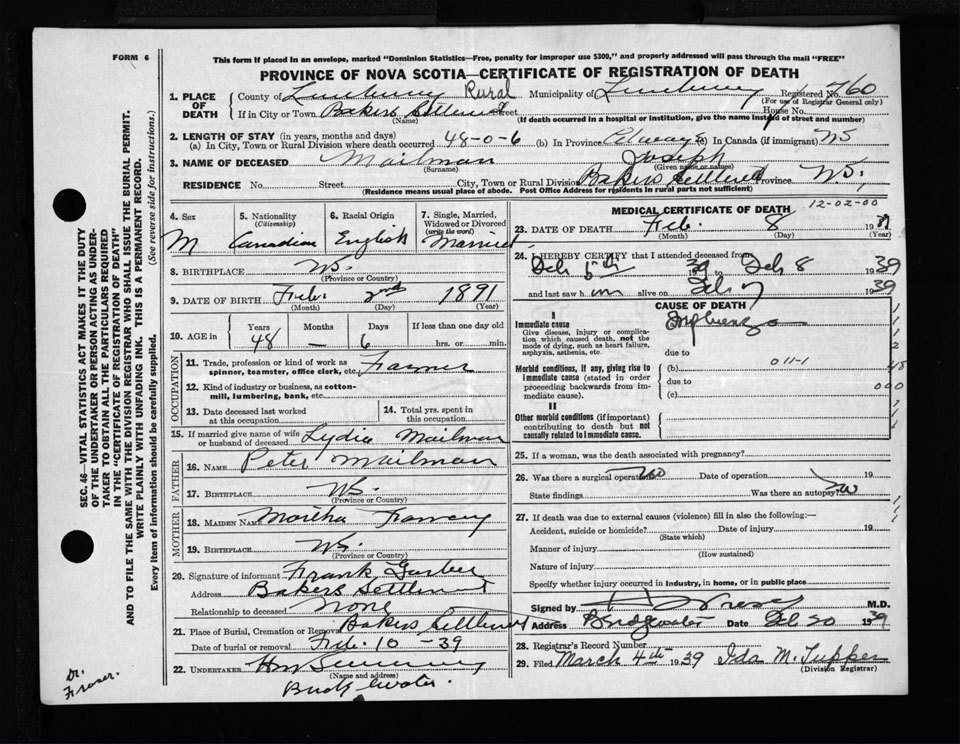 FORM 6
This form if placed in an envelope, marked "Dominion Statistics—Free, penalty for improper use $300," and properly addressed will pass through the mail "FREE"
PROVINCE OF NOVA SCOTIA—CERTIFICATE OF REGISTRATION OF DEATH
1. PLACE OF DEATH
County of Lunenburg Rural Municipality of Lunenburg Registered No. 760
(For use of Registrar General only)
If in City or Town Bakers Settlement Street House No.
(Name) (If death occurred in a hospital or institution, give the name instead of street and number)
2. LENGTH OF STAY (in years, months and days)
(a) In City, Town or Rural Division where death occurred 48-0-6 (b) In Province (c) In Canada (if immigrant) NS
3. NAME OF DECEASED Mailman Joseph
(Surname) (Given name or names)
RESIDENCE No. Street City, Town or Rural Division Bakers Settlement Province N.S.
(Residence means usual place of abode. Post Office Address for residents in rural parts not sufficient)
4. Sex M
5. Nationality (Citizenship) Canadian
6. Racial Origin English
7. Single, Married, Widowed or Divorced (write the word) Married
8. BIRTHPLACE NS.
(Province or Country)
9. DATE OF BIRTH Feb 2nd 1891
(Month) (Day) (Year)
10. AGE in Years 48 Months — Days 6 If less than one day old hrs. or min.
OCCUPATION
11. Trade, profession or kind of work as spinner, teamster, office clerk, etc. Farmer
12. Kind of industry or business, as cotton-mill, lumbering, bank, etc.
13. Date deceased last worked at this occupation
14. Total yrs. spent in this occupation
15. If married give name of wife or husband of deceased Lydia Mailman
FATHER
16. NAME Peter Mailman
17. BIRTHPLACE NS.
(Province or Country)
MOTHER
18. MAIDEN NAME Martha
19. BIRTHPLACE NS.
(Province or Country)
20. Signature of informant Frank
Address Bakers Settlement
Relationship to deceased None
21. Place of Burial, Cremation or Removal Bakers Settlement
Date of burial or removal Feb 10-39
22. UNDERTAKER
(Name and address)
MEDICAL CERTIFICATE OF DEATH 12-02-00
23. DATE OF DEATH Feb. 8 19
(Month) (Day) (Year)
24. I HEREBY CERTIFY that I attended deceased from
Feb 19 39 to Feb 8 1939
and last saw him alive on Feb 7 1939
CAUSE OF DEATH
I
Immediate cause
Give disease, injury or complication which caused death, not the mode of dying, such as heart failure, asphyxia, asthenia, etc.
Influenza
due to
Morbid conditions, if any, giving rise to immediate cause (stated in order proceeding backwards from immediate cause).
(b) 011-1 48
due to
(c) 000
II
Other morbid conditions (if important) contributing to death but not causally related to immediate cause.
25. If a woman, was the death associated with pregnancy?
26. Was there a surgical operation? No Date of operation 19
State findings Was there an autopsy? No
27. If death was due to external causes (violence) fill in also the following:—
Accident, suicide or homicide? Date of injury 19
(State which)
Manner of injury
(How sustained)
Nature of injury
Specify whether injury occurred in industry, in home, or in public place
Signed by M.D.
Address Bridgewater Date Feb 20 1939
28. Registrar's Record Number
29. Filed March 4th 1939 Ida M. Tupper
(Division Registrar)
SEC. 46—VITAL STATISTICS ACT MAKES IT THE DUTY
OF THE UNDERTAKER OR PERSON ACTING AS UNDER-
TAKER TO OBTAIN ALL THE PARTICULARS REQUIRED
IN THE "CERTIFICATE OF REGISTRATION OF DEATH"
AND TO FILE THE SAME WITH THE DIVISION REGISTRAR WHO SHALL ISSUE THE BURIAL PERMIT.
WRITE PLAINLY WITH UNFADING INK. THIS IS A PERMANENT RECORD.
Every item of information should be carefully supplied. (See reverse side for instructions.)
Dr.
Fraser.